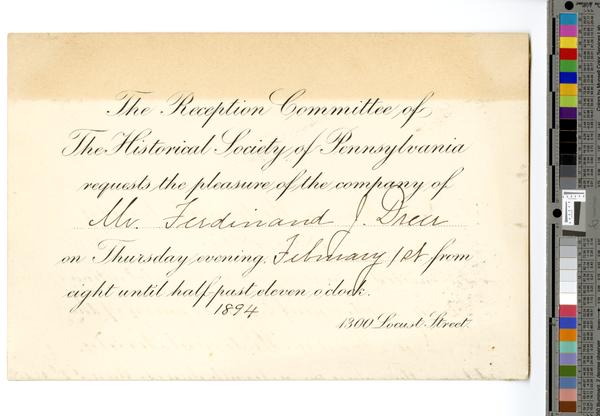 The Reception Committee of
The Historical Society of Pennsylvania
requests the pleasure of the company of
Mr. Ferdinand J. Dreer
on Thursday evening, February 1st from
eight until half past eleven o'clock.
1894
1300 Locust Street.